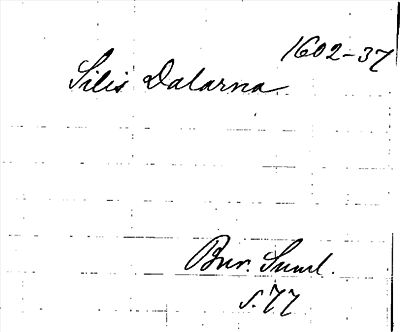 1602-37
Silis Dalarna
Bur. Suml.
s. 77